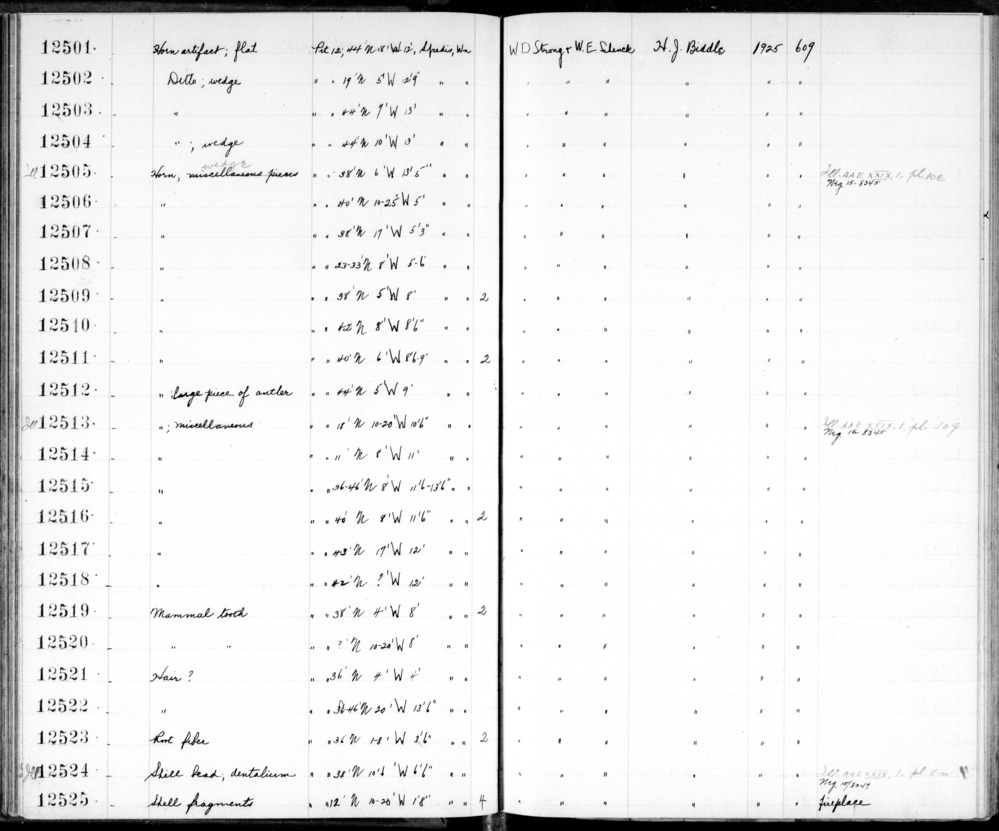 12501 Horn artifact; flat Pit 12; 44' N 8' W 12', Spedis, Wn W D Strong + W. E. Schenck H. J. Biddle 1925 609
12502 Ditto; wedge " " 19' N 5' W 12'9" " " " " " " " "
12503 " " " 44' N 9' W 13' " " " " " " " "
12504 " ; wedge " " 44' N 10' W 13' " " " " " " " "
wedge
Ill 12505 Horn, miscellaneous pieces " " 38' N 6' W 13'5" " " " " " " " " Ill. AAE XXIX, 1, pl 10e
Neg 15-8345
12506 " " " 40' N 10-25' W 5' " " " " " " " "
12507 " " " 38' N 17' W 5'3" " " " " " " " "
12508 " " " 23-33' N 8' W 5-6' " " " " " " " "
12509 " " " 38' N 5' W 8' " " 2 " " " " " "
12510 " " " 42' N 8' W 8'6" " " " " " " " "
12511 " " " 40' N 6' W 8'6-9' " " 2 " " " " " "
12512 " ; large piece of antler " " 44' N 5' W 9' " " " " " " " "
Ill 12513 " ; miscellaneous " " 18' N 10-20' W 10'6" " " " " " " " " Ill. AAE XXIX, 1, pl 10g
Neg 15-8345
12514 " " " 11' N 8' W 11' " " " " " " " "
12515 " " " 36-46' N 8' W 11'6-13'6" " " " " " " " "
12516 " " " 40' N 8' W 11'6" " " 2 " " " " " "
12517 " " " 43' N 17' W 12' " " " " " " " "
12518 " " " 42' N ?' W 12' " " " " " " " "
12519 Mammal tooth " " 38' N 4' W 8' " " 2 " " " " " "
12520 " " " " ?' N 10-20' W 8' " " " " " " " "
12521 Hair ? " " 36' N 4' W 4' " " " " " " " "
12522 " " " 36-46' N 20' W 13'6" " " " " " " " "
12523 Root fiber " " 36' N 1-8' W 3'6" " " 2 " " " " " "
Ill 12524 Shell bead, dentalium " " 38' N 10'6 'W 6'6" " " " " " " " " Ill. AAE XXIX, 1, pl
Neg
12525 Shell fragments " " 12' N 10-20' W 1'8" " " 4 " " " " " " fireplace